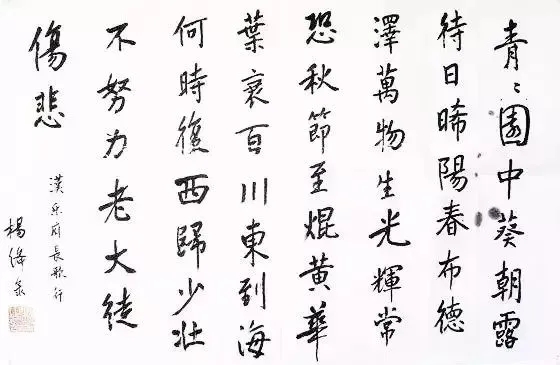 青〻園中葵朝露
待日晞陽春布德
澤萬物生光輝常
恐秋節至焜黄華
葉衰百川東到海
何時復西歸少壯
不努力老大徒
傷悲
漢乐府長歌行
楊絳